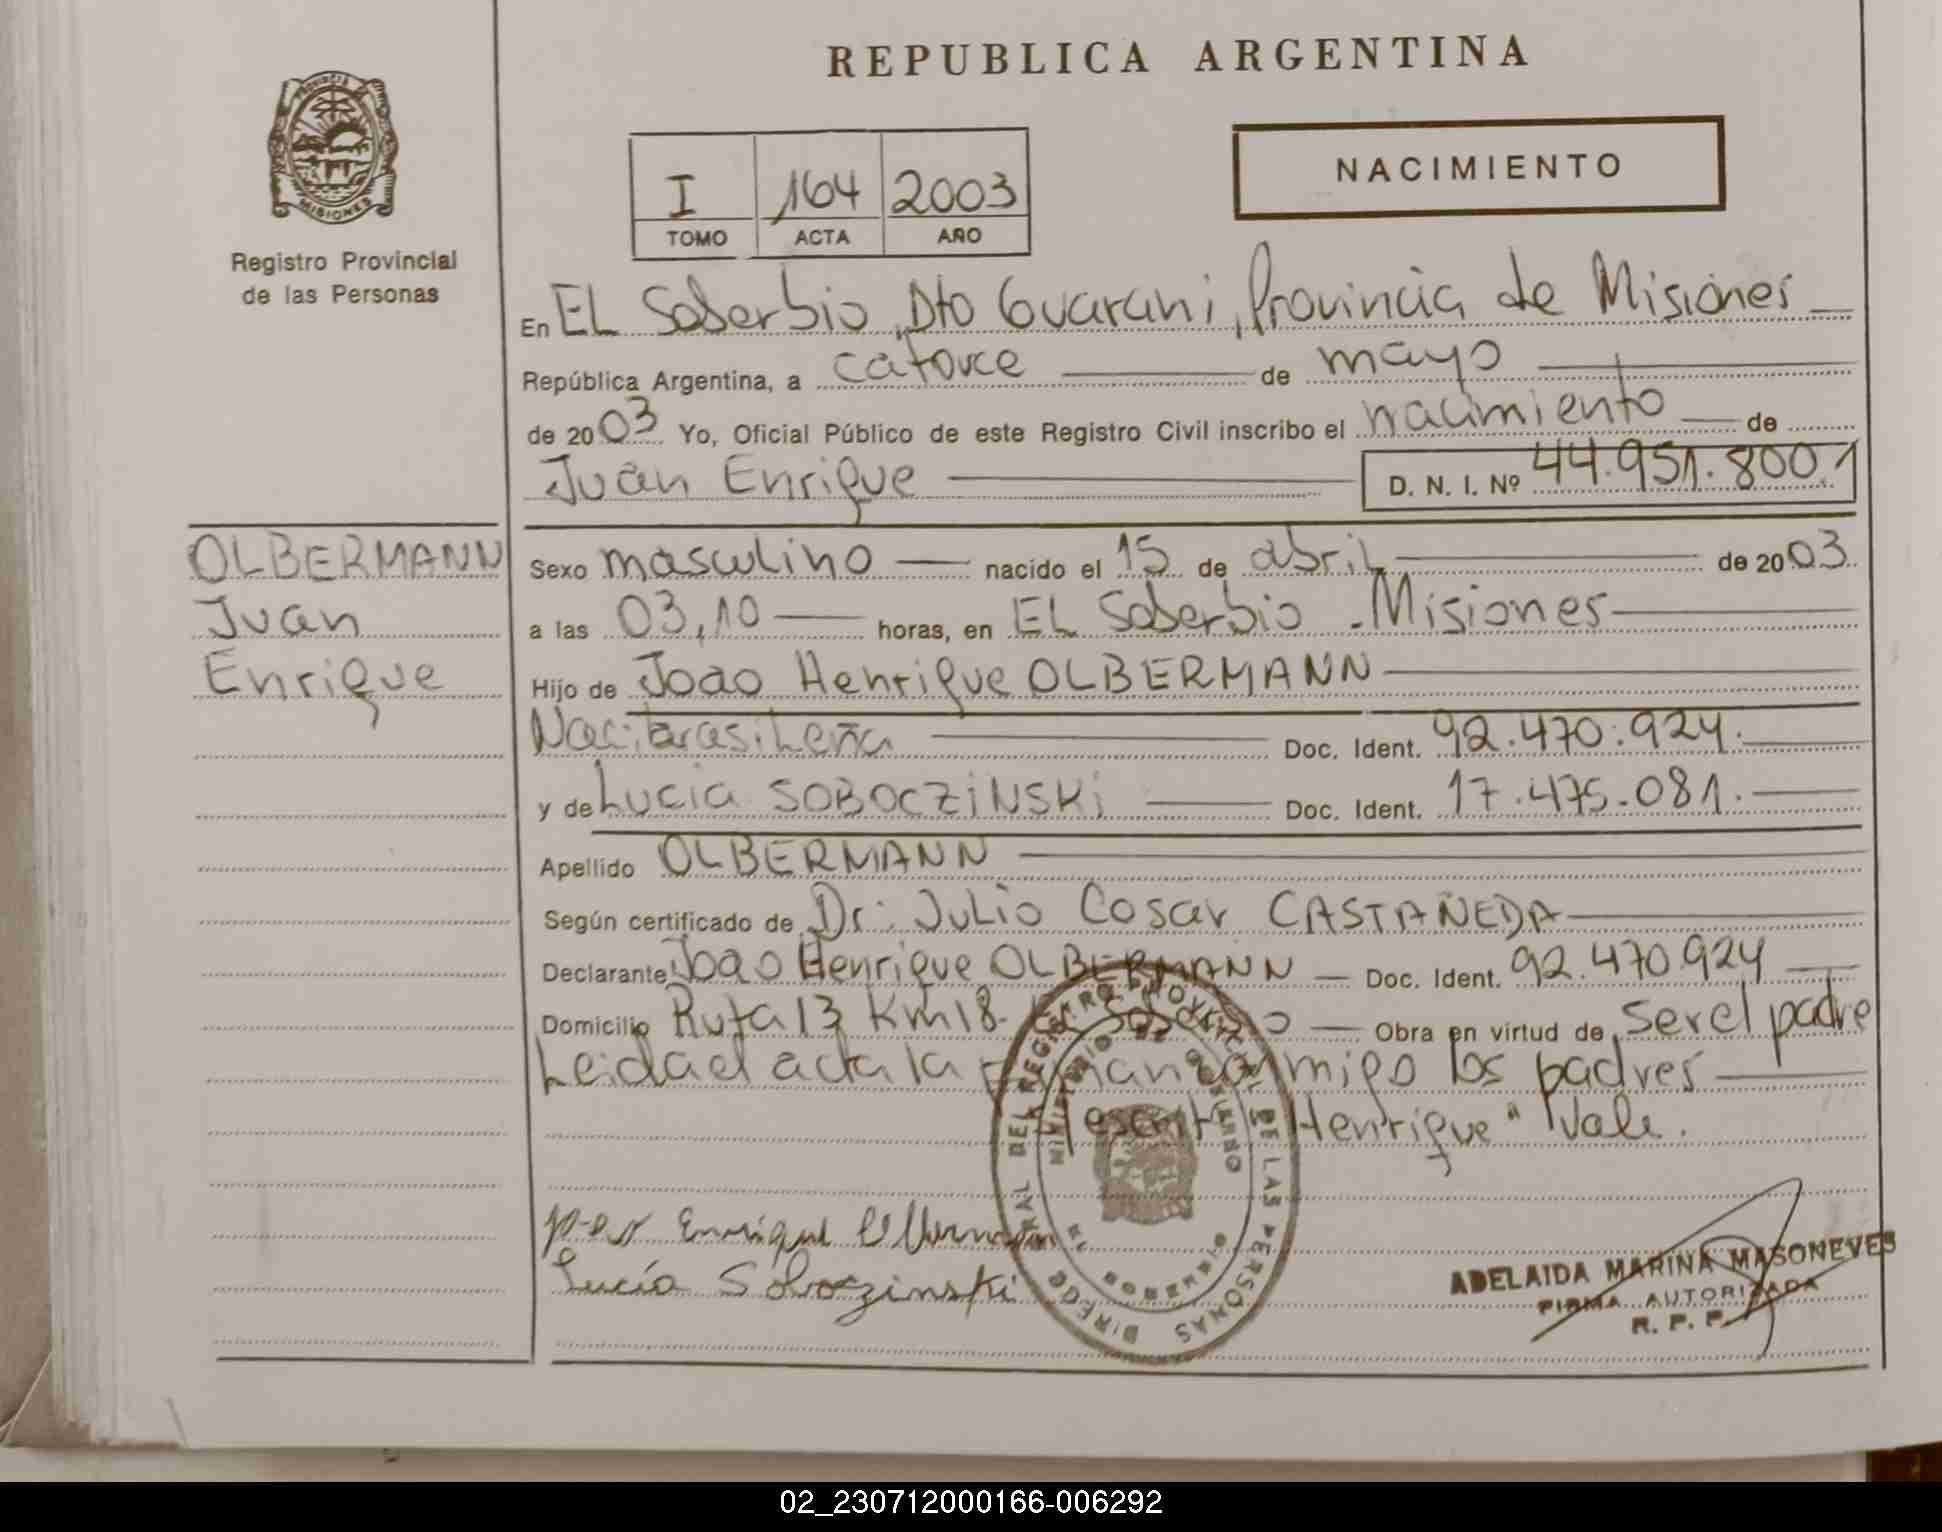 REPUBLICA ARGENTINA
PROVINCIA DE
MISIONES
Registro Provincial
de las Personas
I 164 2003
TOMO ACTA AÑO
NACIMIENTO
En EL Soberbio, Dto Guarani, Provincia de Misiones
República Argentina, a catorce de mayo
de 2003 Yo, Oficial Público de este Registro Civil inscribo el nacimiento de
Juan Enrique D. N. I. Nº 44.951.800
OLBERMANN
Juan
Enrique
Sexo masculino nacido el 15 de abril de 2003
a las 03,10 horas, en EL Soberbio - Misiones
Hijo de Joao Henrique OLBERMANN
Nac: brasileña Doc. Ident. 92.470.924.
y de Lucia SOBOCZINSKI Doc. Ident. 17.475.081.
Apellido OLBERMANN
Según certificado de Dr: Julio Cesar CASTAÑEDA
Declarante Joao Henrique OLBERMANN Doc. Ident. 92.470.924
Domicilio Ruta 13 Km 18. El Soberbio Obra en virtud de ser el padre
Leida el acta la firman conmigo los padres
escrito "Henrique" Vale.
Enrique Olbermann
Lucía Soboczinski
DIREC RAL DEL REGISTRO PROVINCIAL DE LAS PERSONAS
MINISTERIO DE GOBIERNO
MISIONES
ADELAIDA MARINA MASONEVES
FIRMA AUTORIZADA
R. P. P.
02_230712000166-006292